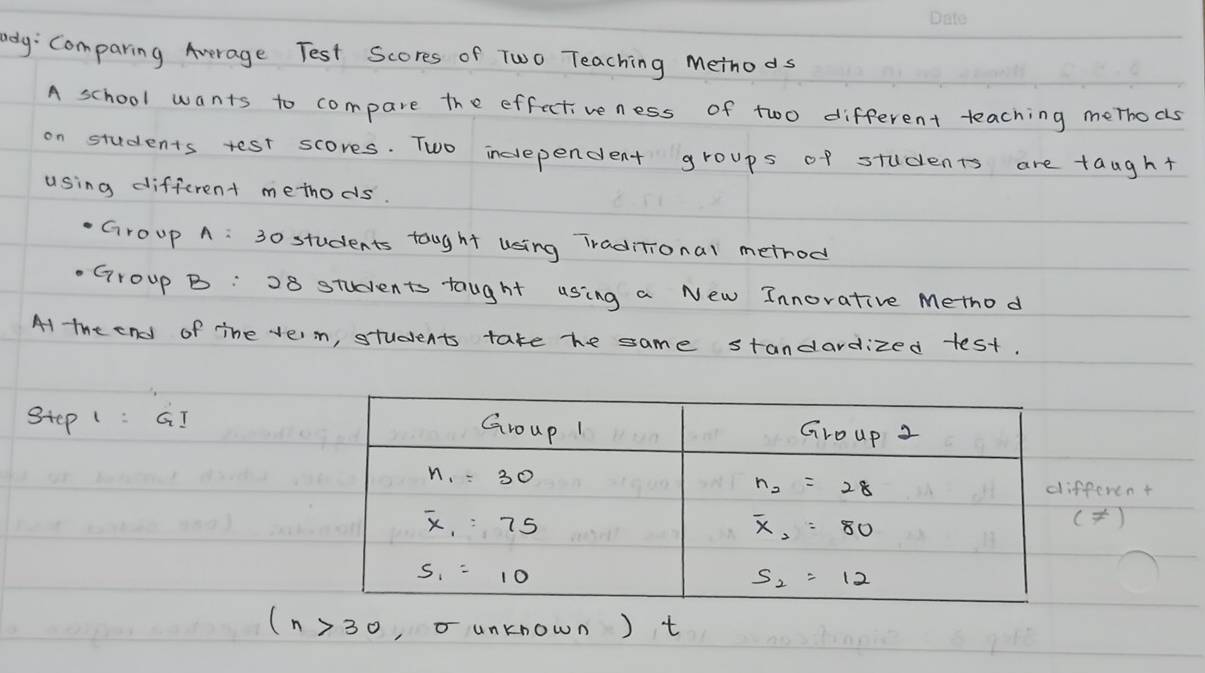 Date
ody: Comparing Average Test Scores of Two Teaching Methods
A school wants to compare the effectiveness of two different teaching methods
on students test scores. Two independent groups of students are taught
using different methods.
• Group A : 30 students taught using Traditional method
• Group B : 28 students taught using a New Innovative Method
At the end of the term, students take he same standardized test.
Step 1 : GI
Group 1 Group 2
n₁ = 30 n₂ = 28 different
x̄₁ = 75 x̄₂ = 80 (≠)
s₁ = 10 s₂ = 12
(n > 30, σ unknown) t